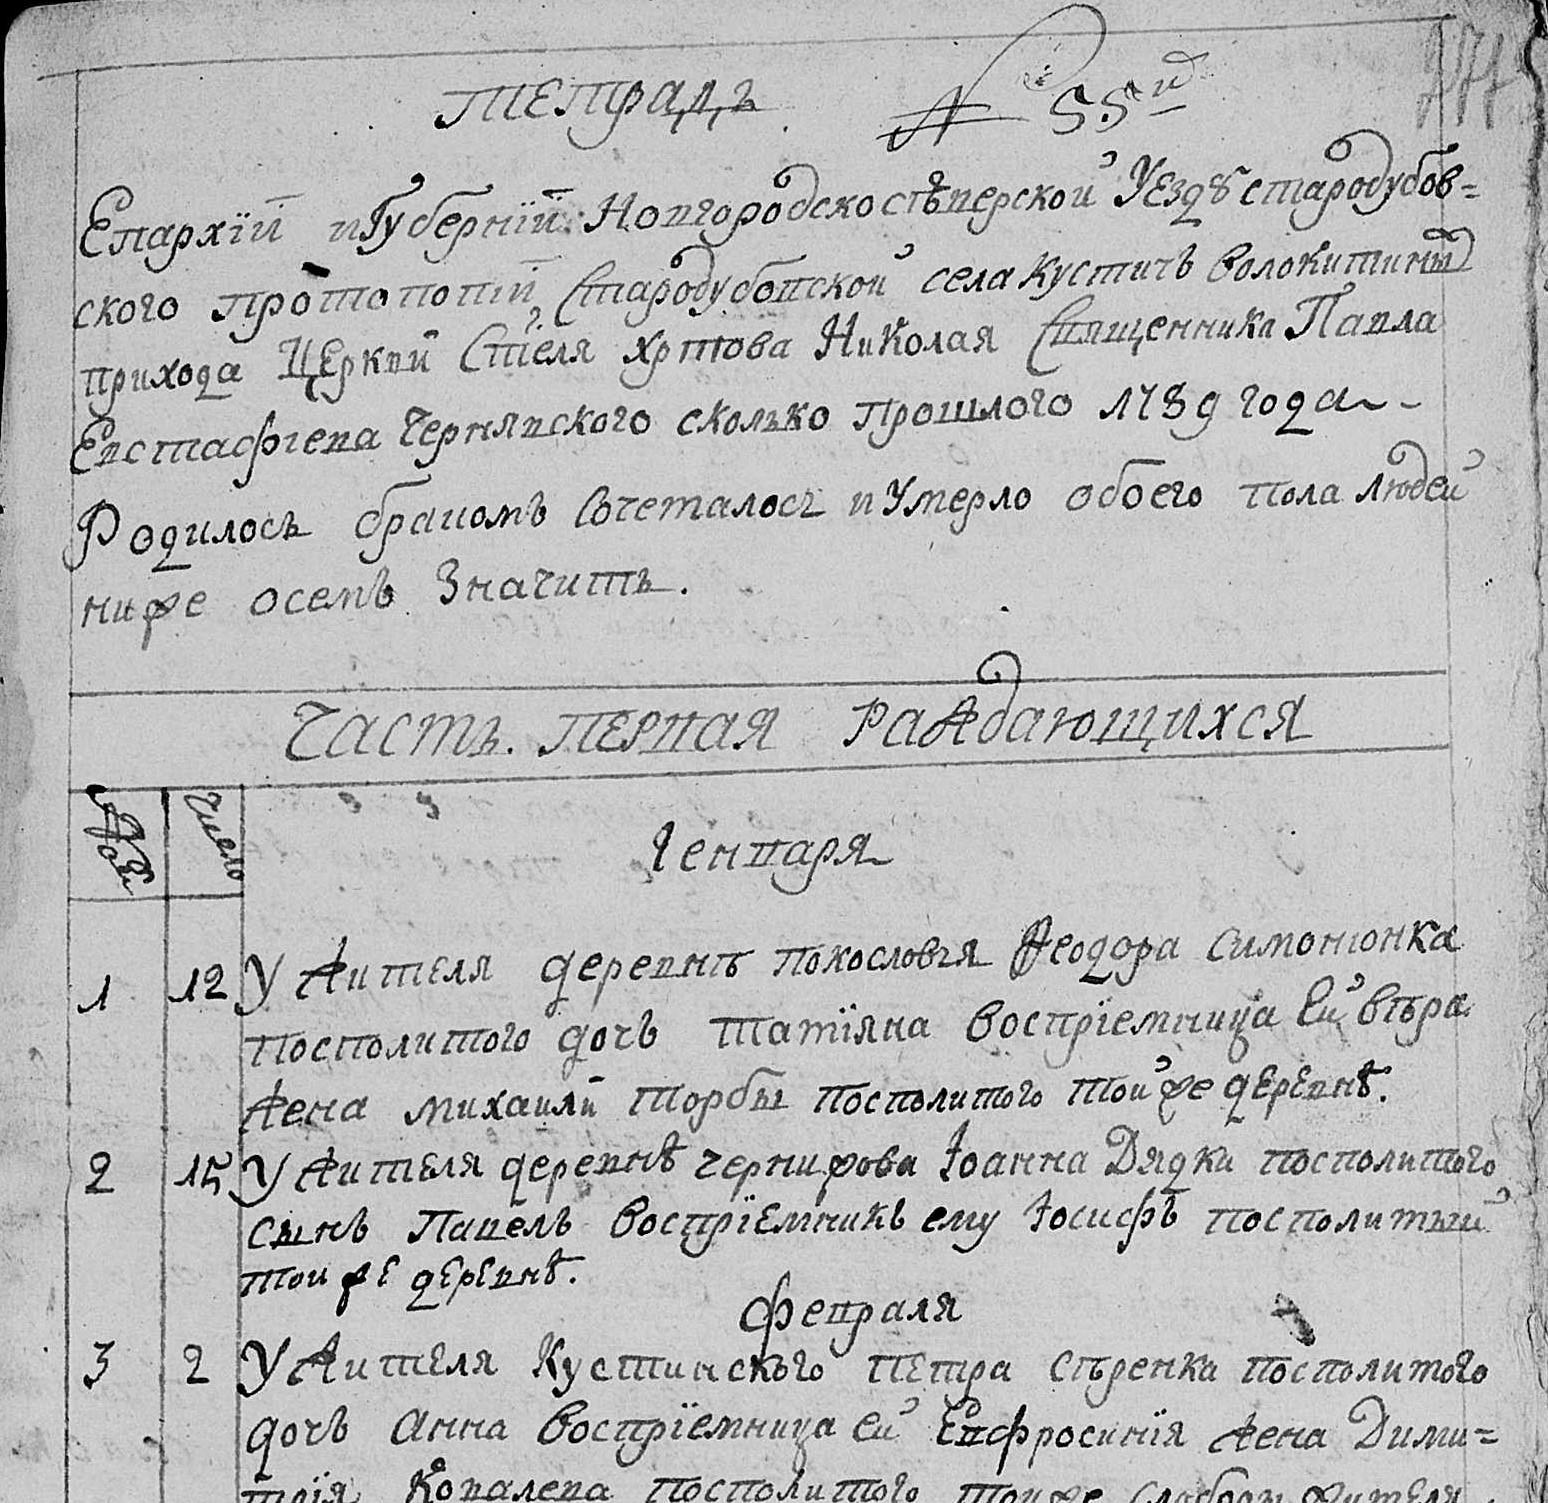 тетрадь № 55й
Епархїи и Губернїи Новгородскосѣверской Уезду стародубов=
ского протопопїи Стародубовской села Кустичъ Волокитинъ
прихода Церкви Стѣля Хртова Николая Священника Павла
Евстафіева Чернявского сколько прошлого 1789 года
Родилось бракомъ Сочеталось и Умерло обоего пола людей
ниже осемъ Значитъ.
Часть. первая раждающихся
Число
Іенваря
1 12 У жителя деревнѣ покословъя Ѳеодора Симонюнка
посполитого дочь татїяна воспрїемница Ей вѣра
жена михаили торбы посполитого той же деревнѣ.
2 15 У жителя деревнѣ чернижова Іоанна Дядки посполитого
сынъ Павелъ воспрїемникъ ему Іосифъ посполитый
той же деревнѣ.
февраля
3 2 У жителя Кустинскъго петра сѣренка посполитого
дочь Анна воспрїемница ей Евфросинїя жена Дими=
трїя Ковалева посполитого той же слободы жителя.